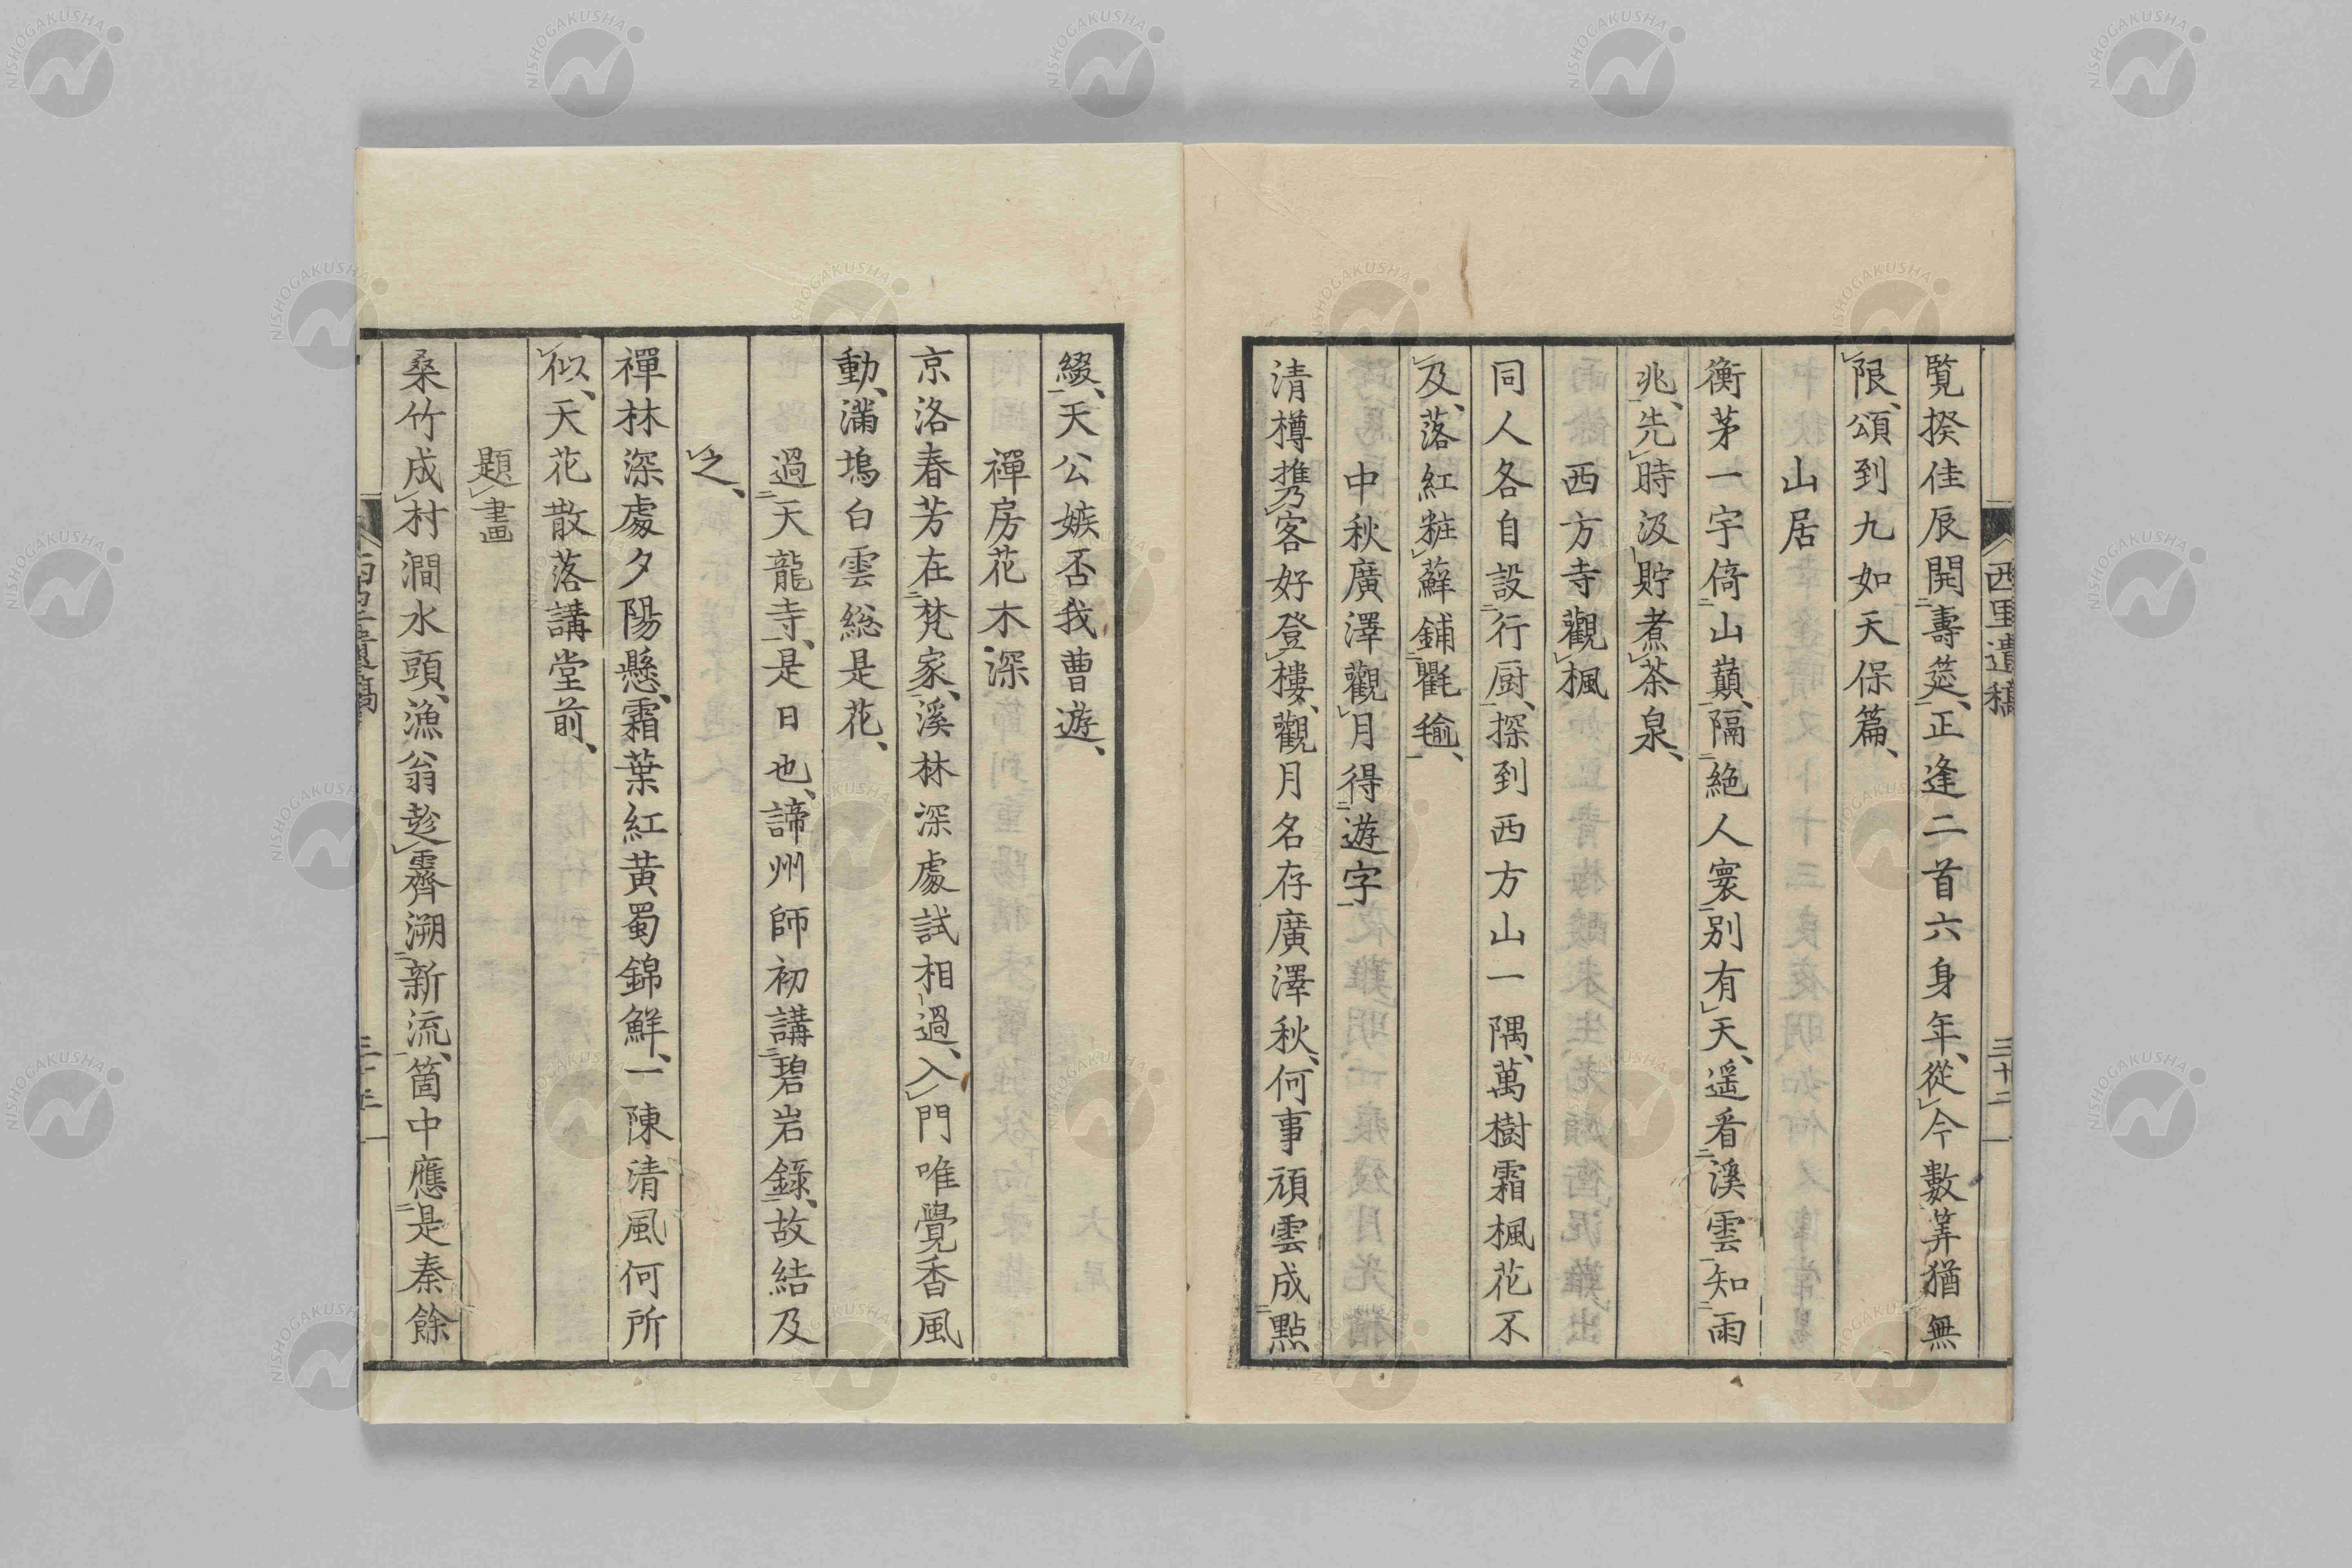 西里遺稿
三十二
覧揆佳辰開壽筵、正逢二首六身年、從今數筭猶無
限、頌到九如天保篇、
山居
衡茅一宇倚山巔、隔絶人寰別有天、遥看溪雲知雨
兆、先時汲貯煮茶泉、
西方寺觀楓
同人各自設行厨、探到西方山一隅、萬樹霜楓花不
及、落紅粧蘚鋪氍毹、
中秋廣澤觀月得遊字
清樽携客好登樓、觀月名存廣澤秋、何事頑雲成點
綴、天公嫉否我曹遊、
禪房花木深
京洛春芳在梵家、溪林深處試相過、入門唯覺香風
動、滿塢白雲総是花、
過天龍寺、是日也、諦州師初講碧岩錄、故結及
之、
禪林深處夕陽懸、霜葉紅黃蜀錦鮮、一陳清風何所
似、天花散落講堂前、
題畫
桑竹成村澗水頭、漁翁趁霽溯新流、箇中應是秦餘
NISHOGAKUSHA